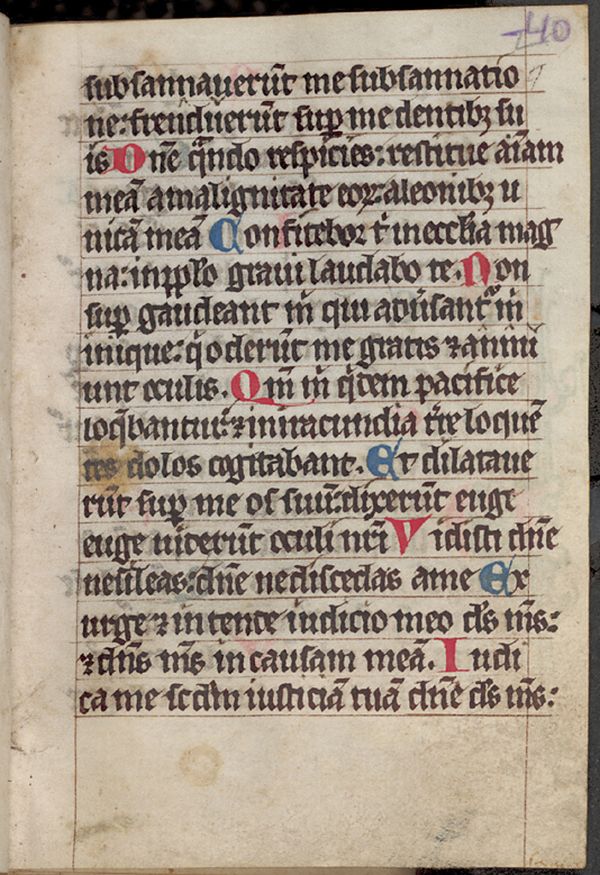 40
subsannaverūt me subsannatio
ne: frenduerūt sup me dentibꝫ su
is Dne q̄ndo respicies: restitue aīam
meā a malignitate eoꝝ: a leonibꝫ u
nicā meā Confitebor t̄ in ecclīa mag
na: in pp̄lo graui laudabo te. Non
sup gaudeant m̄ qui adūsantˀ m̄
inique: q̄ oderūt me gratis ⁊ annu
unt oculis. Qm̄ m̄ q̄dem pacifice
loq̄bantur: ⁊ in iracundia tr̄e loquē
tes dolos cogitabant. Et dilataue
rūt sup me os suū: dixerūt euge
euge uiderūt oculi nr̄i Vidisti dn̄e
ne sileas: dn̄e ne discedas a me Ex
urge ⁊ intende iudicio meo ds̄ ms̄:
⁊ dn̄s ms̄ in causam meā. Iudi
ca me scd̄m iusticiā tuā dn̄e ds̄ ms̄: